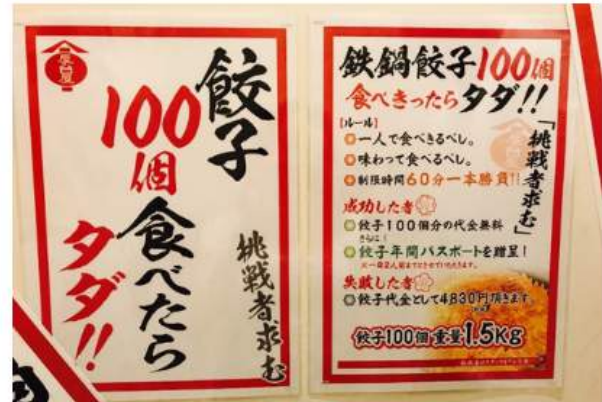 餃子
100個
食べたら
タダ!!
挑戦者求む
鉄鍋餃子100個
食べきったらタダ!!
「挑戦者求む」
【ルール】
一人で食べきるべし。
味わって食べるべし。
制限時間60分一本勝負!!
成功した者
餃子100個分の代金無料
さらに!
餃子年間パスポートを贈呈!
失敗した者
餃子代金として4830円頂きます。
餃子100個重量1.5Kg